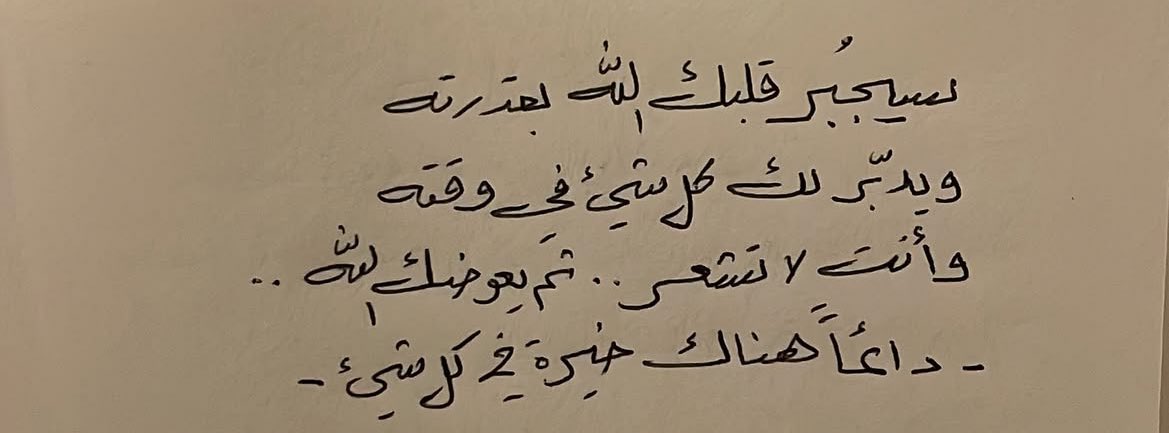 سيجبُر قلبك الله بقدرته
ويدبّر لك كل شيئ في وقته
وأنت لا تشعر .. ثم يعوضك الله ..
- دائماً هناك خيرة في كل شيئ -